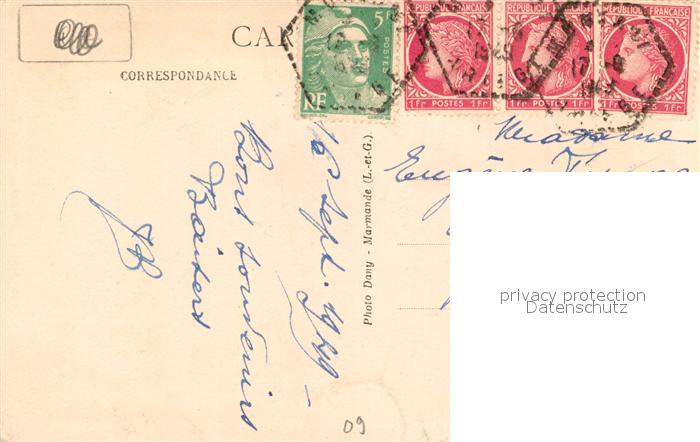 CAR
CORRESPONDANCE
5F
POSTES
RF
RÉPUBLIQUE FRANÇAISE
1Fr POSTES 1Fr
RÉPUBLIQUE FRANÇAISE
1Fr POSTES 1Fr
RÉPUBLIQUE FRANÇAISE
1Fr POSTES 1Fr
Madame
Eugène
16 Sept. 1949 -
Bons souvenirs
Baisers
Photo Dany - Marmande (L.-et-G.)
privacy protection
Datenschutz
09